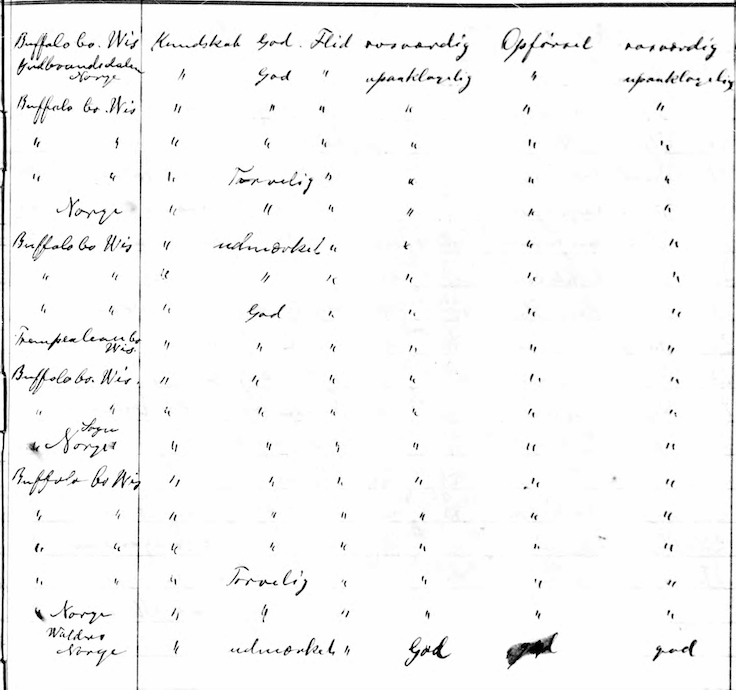 Buffalo Co. Wis Kundskab God. Flid rosværdig Opførsel rosværdig
Gudbrandsdalen
Norge " God " upaaklagelig " upaaklagelig
Buffalo Co. Wis " " " " " "
" " " " " " " "
" " " Torvelig " " " "
Norge " " " " " "
Buffalo Co Wis " udmærket " " " "
" " " " " " " "
" " " God " " " "
Trempealeau Co
Wis. " " " " " "
Buffalo Co. Wis. " " " " " "
" " " " " " " "
Sogn
" Norge " " " " " "
Buffalo Co Wis " " " " " "
" " " " " " " "
" " " " " " " "
" " " Torvelig " " " "
" Norge " " " " " "
Waldres
Norge " udmærket " God god god